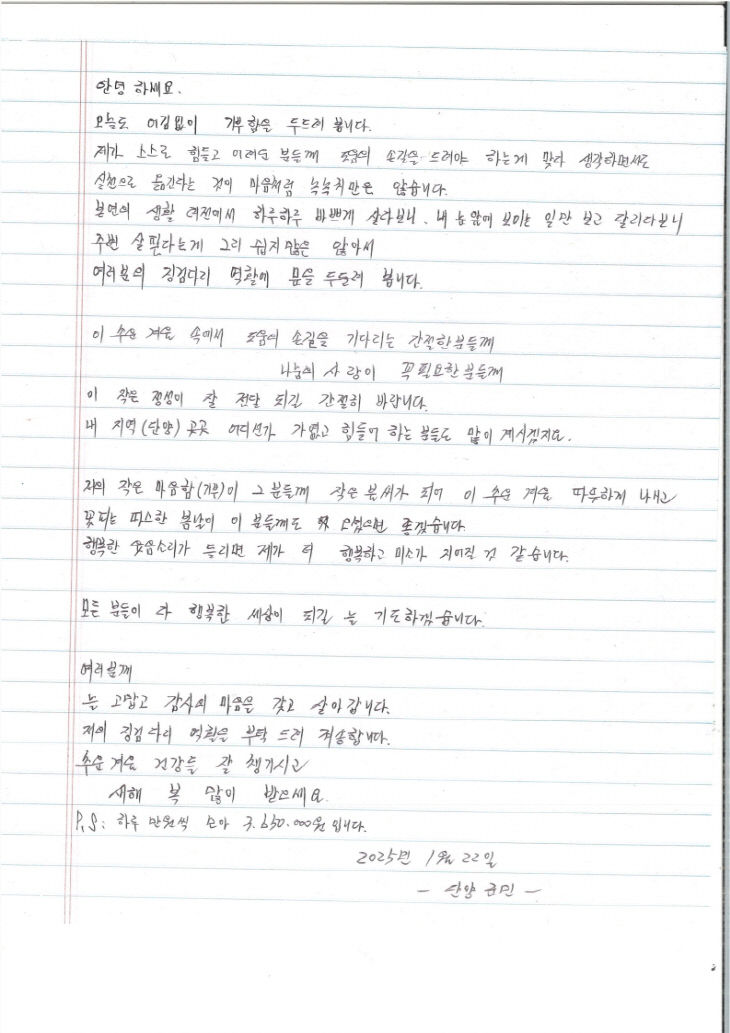 안녕 하세요.
오늘도 어김없이 기부함을 두드려 봅니다.
제가 스스로 힘들고 어려운 분들께 도움의 손길을 드려야 하는게 맞다 생각하면서도
실천으로 옮긴다는 것이 마음처럼 녹녹치만은 않습니다.
본연의 생활 여건에서 하루하루 바쁘게 살다보니. 내 눈앞에 보이는 일만 보고 달리다보니
주변 살핀다는게 그리 쉽지많은 않아서
여러분의 징검다리 역활에 문을 두둘려 봅니다.
이 추운 겨울 속에서 도움의 손길을 기다리는 간절한분들께
나눔의 사랑이 꼭필요한분들께
이 작은 정성이 잘 전달 되길 간절히 바랍니다.
내 지역(단양) 곳곳 어디선가 가엾고 힘들어 하는분들도 많이 계시겠지요.
저의 작은 마음함(기부)이 그분들께 작은 불씨가 되어 이 추운 겨울 따듯하게 나시고
꽃피는 따스한 봄날이 이 분들께도 오셨으면 좋겠습니다
행복한 웃음소리가 들리면 제가 더 행복하고 미소가 지어질 것 같습니다.
모든 분들이 다 행복한 세상이 되길 늘 기도하겠습니다.
여러분께
늘 고맙고 감사의 마음을 갖고 살아갑니다.
저의 징검다리 역활을 부탁 드려 죄송합니다.
추운 겨울 건강들 잘 챙기시고
새해 복 많이 받으세요.
P.S: 하루 만원씩 모아 3.650.000원입니다.
2025년 1월 22일
- 단양 군민 -